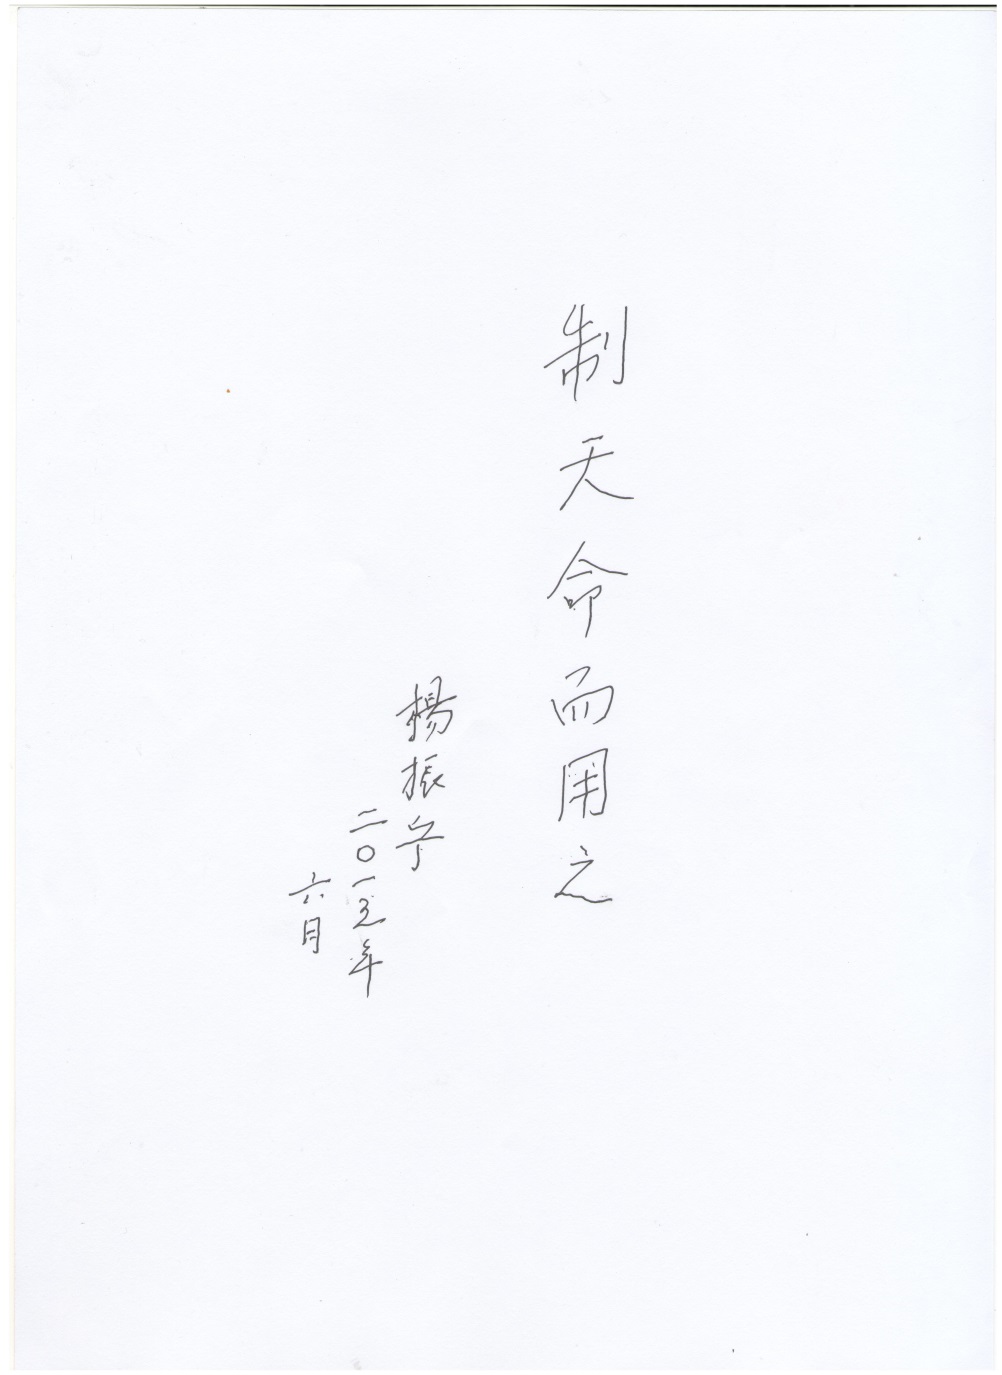 制天命而用之
楊振宁
二〇一三年
六月